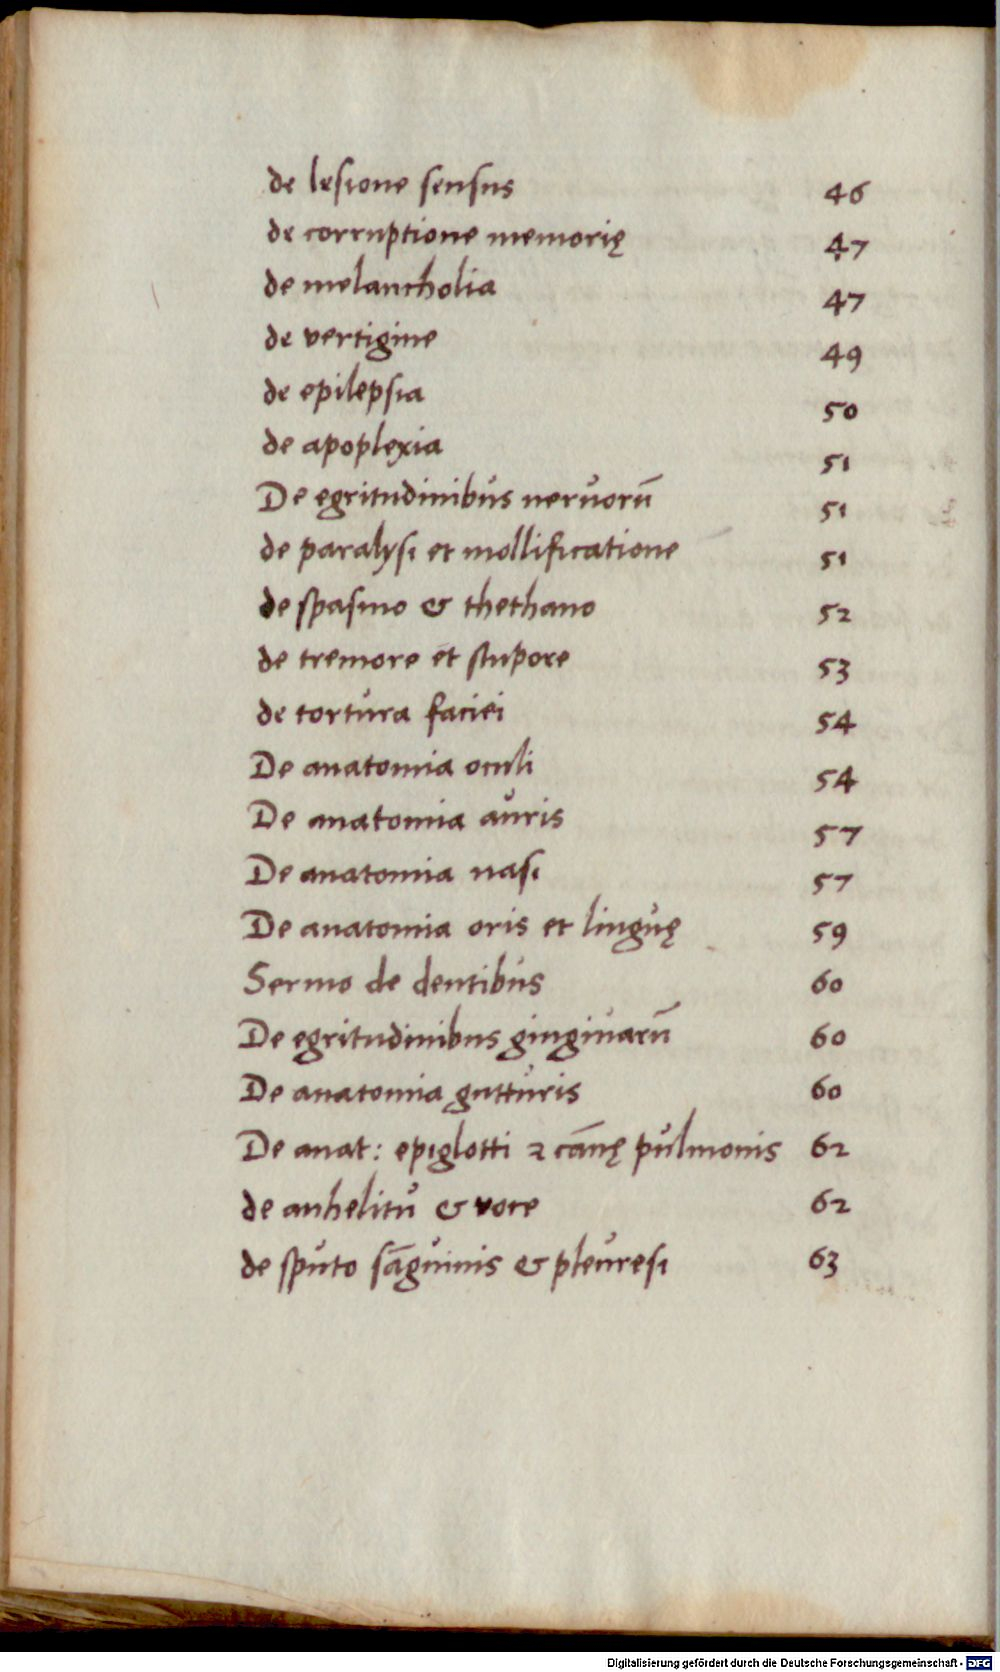 de lesione sensus 46
de corruptione memorię 47
de melancholia 47
de vertigine 49
de epilepsia 50
de apoplexia 51
De egritudinibus neruorū 51
de paralysi et mollificatione 51
de spasmo & thethano 52
de tremore et stupore 53
de tortura faciei 54
De anatomia oculi 54
De anatomia auris 57
De anatomia nasi 57
De anatomia oris et linguę 59
Sermo de dentibus 60
De egritudinibus gingiuarū 60
De anatomia gutturis 60
De anat: epiglotti ⁊ cānę pulmonis 62
de anhelitu & voce 62
de sputo sāguinis & pleuresi 63
Digitalisierung gefördert durch die Deutsche Forschungsgemeinschaft - DFG